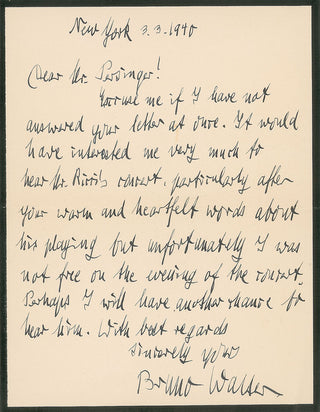 New York 3.3.1940
Dear Mr. Persinger!
Excuse me if I have not
answered your letter at once. It would
have interested me very much to
hear Mr. Ricci's concert, particularly after
your warm and heartfelt words about
his playing but unfortunately I was
not free on the evening of the concert.
Perhaps I will have another chance to
hear him. With best regards
sincerely yours
Bruno Walter